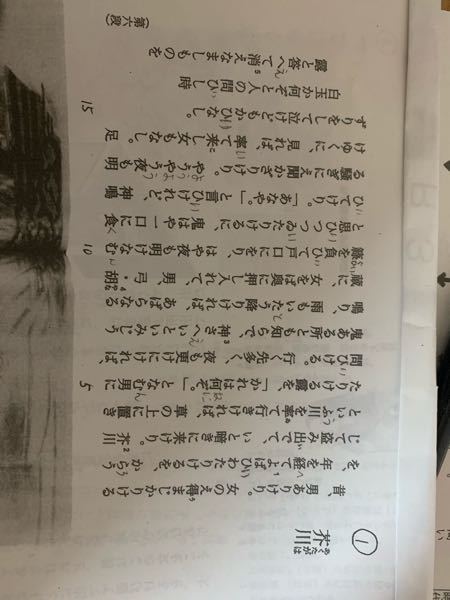 ① 芥川
昔、男ありけり。女のえ得まじかりける
を、年を経てよばひわたりけるを、からう
じて盗み出でて、いと暗きに来けり。芥川
といふ川を率て行きければ、草の上に置き
たりける露を、「かれは何ぞ。」となむ男に
問ひける。行く先多く、夜も更けにければ、
鬼ある所とも知らで、神さへいといみじう
鳴り、雨もいたう降りければ、あばらなる
蔵に、女をば奥に押し入れて、男、弓・胡
簶を負ひて戸口にをり、はや夜も明けなむ
と思ひつつゐたりけるに、鬼はや一口に食
ひてけり。「あなや。」と言ひけれど、神鳴
る騒ぎにえ聞かざりけり。やうやう夜も明
けゆくに、見れば、率て来し女もなし。足
ずりをして泣けどもかひなし。
白玉か何ぞと人の問ひし時
露と答へて消えなましものを
（第六段）
5
10
15